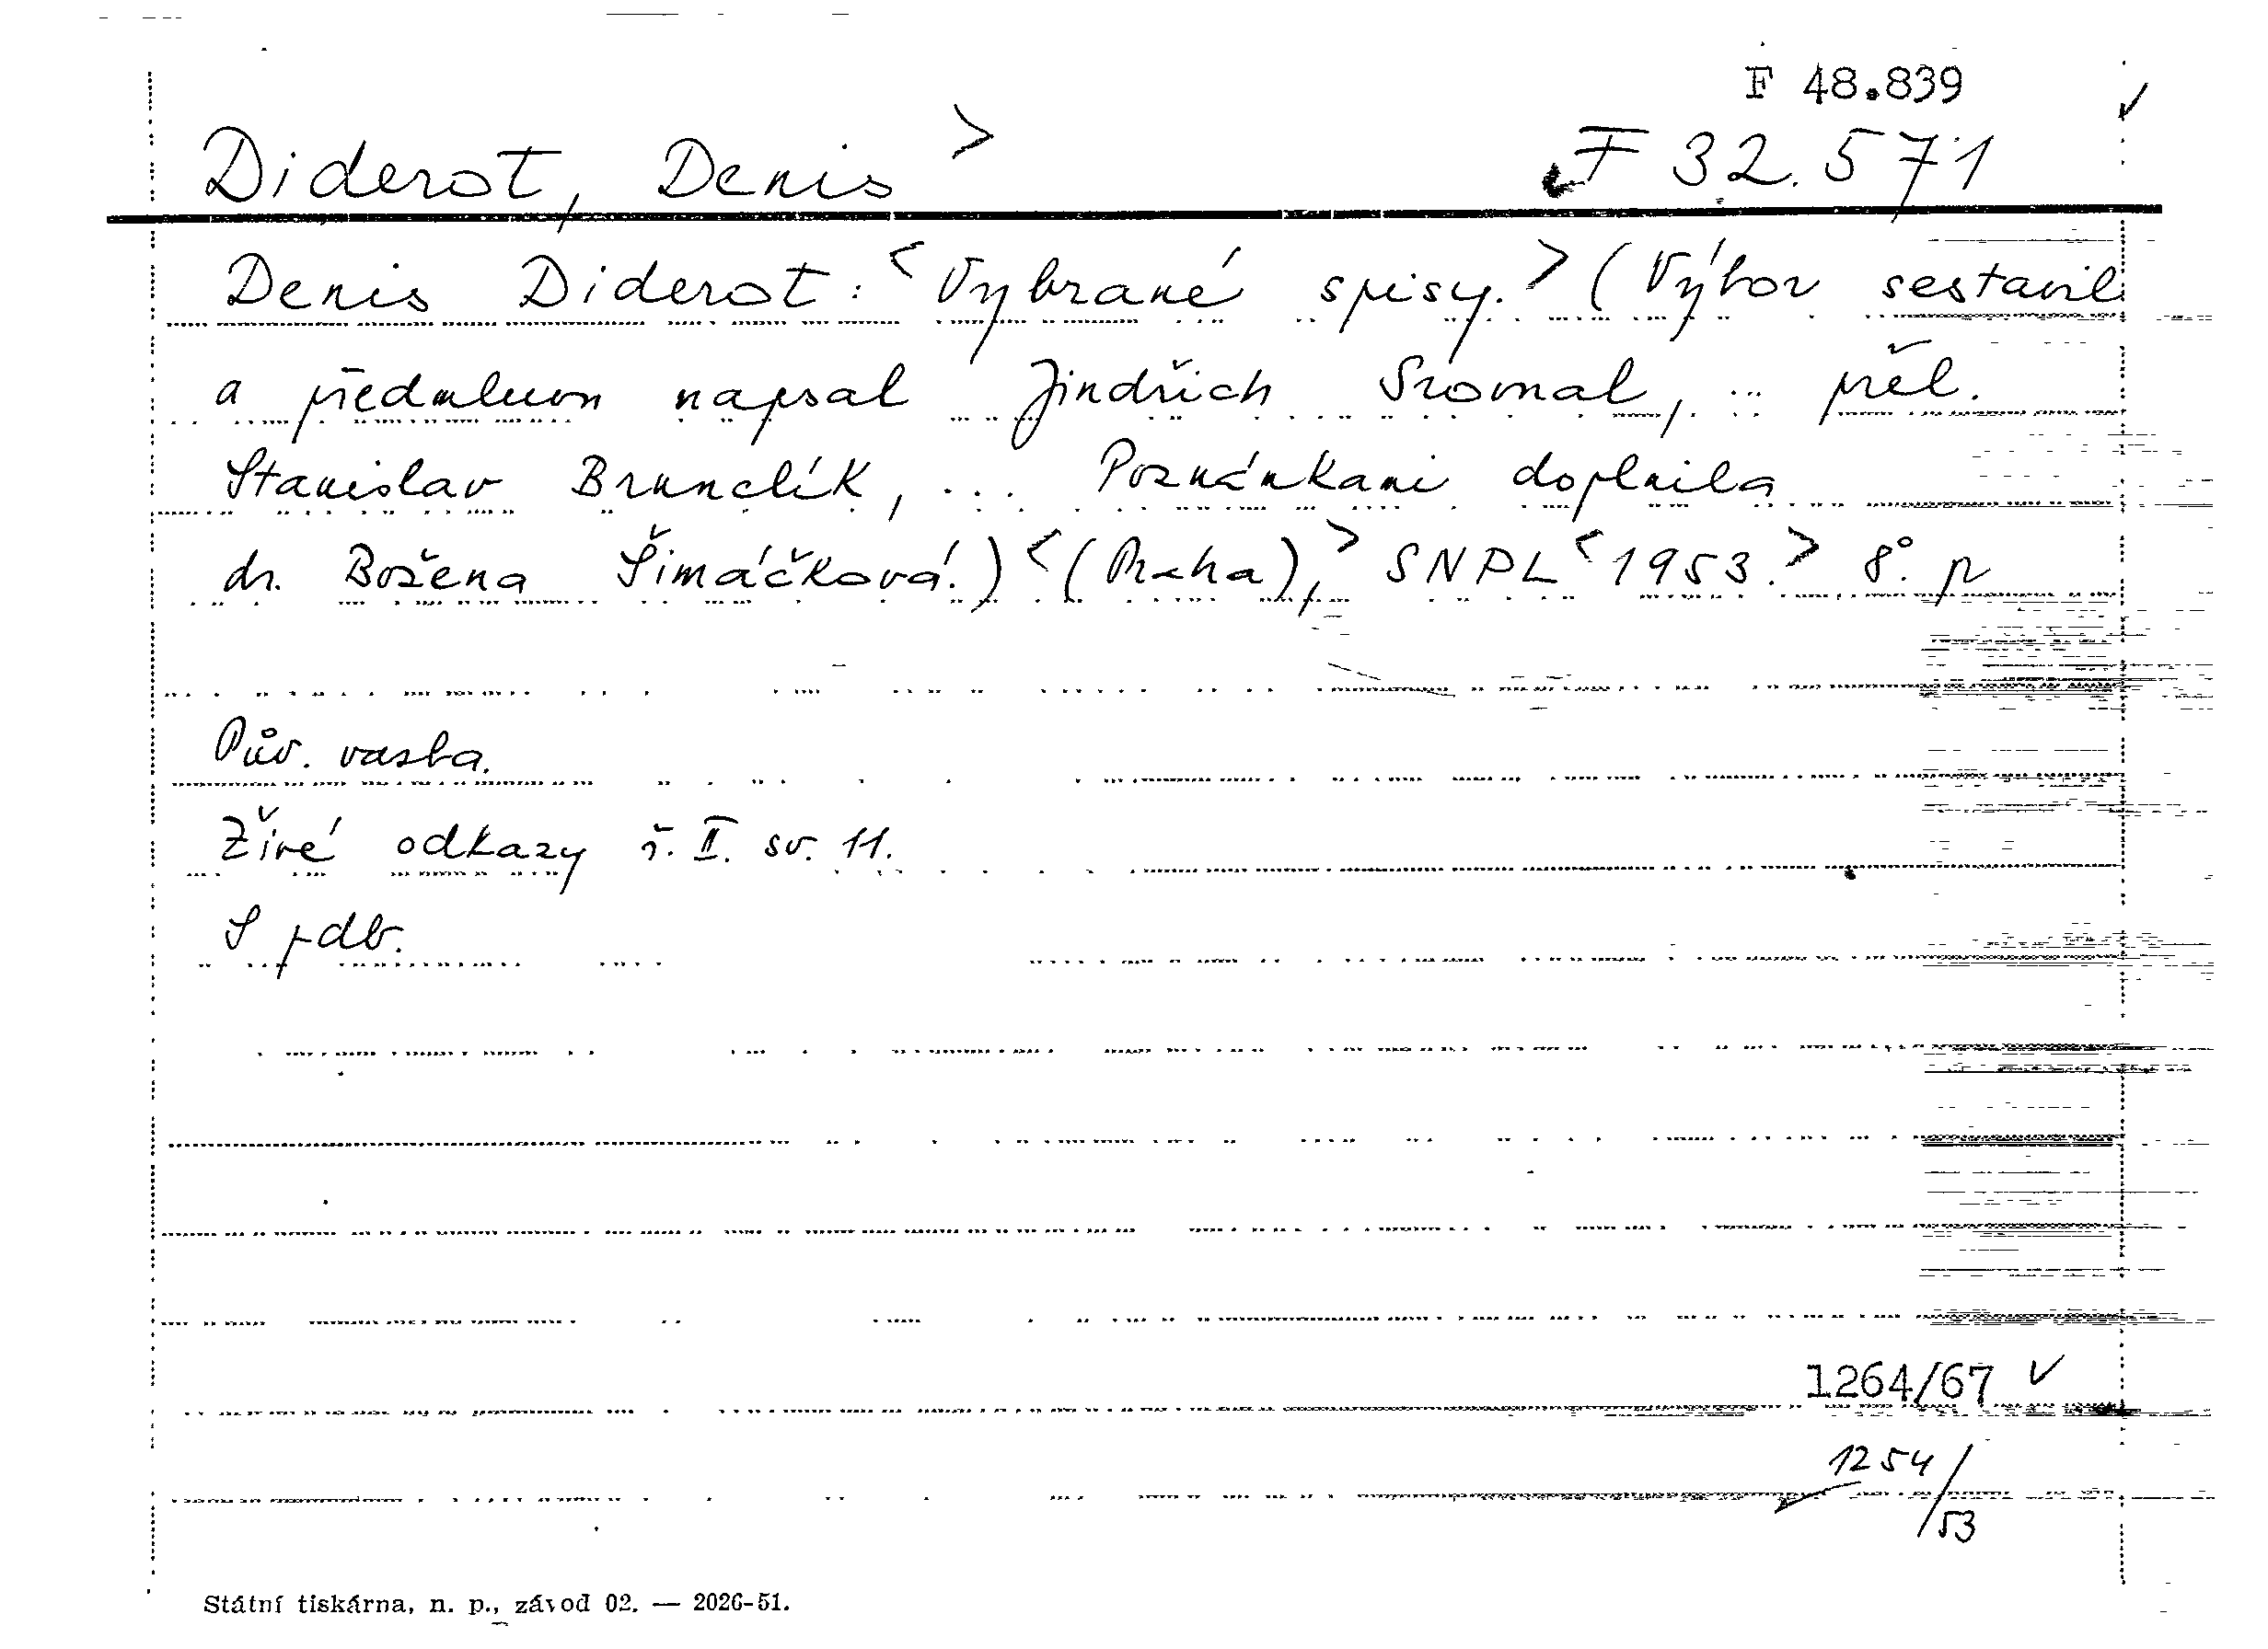 F 48.839 ✓
Diderot, Denis > F 32.571
Denis Diderot: <Vybrané spisy.> (Výbor sestavil
a předmluvu napsal Jindřich Sromal, ... přel.
Stanislav Brunclík, ... Poznámkami doplnila
dr. Božena Šimáčková.) <(Praha),> SNPL <1953.> 8°. p
Pův. vazba.
Živé odkazy ř. II. sv. 11.
S pdb.
1264/67 ✓
1254/53
Státní tiskárna, n. p., závod 02. — 2026-51.